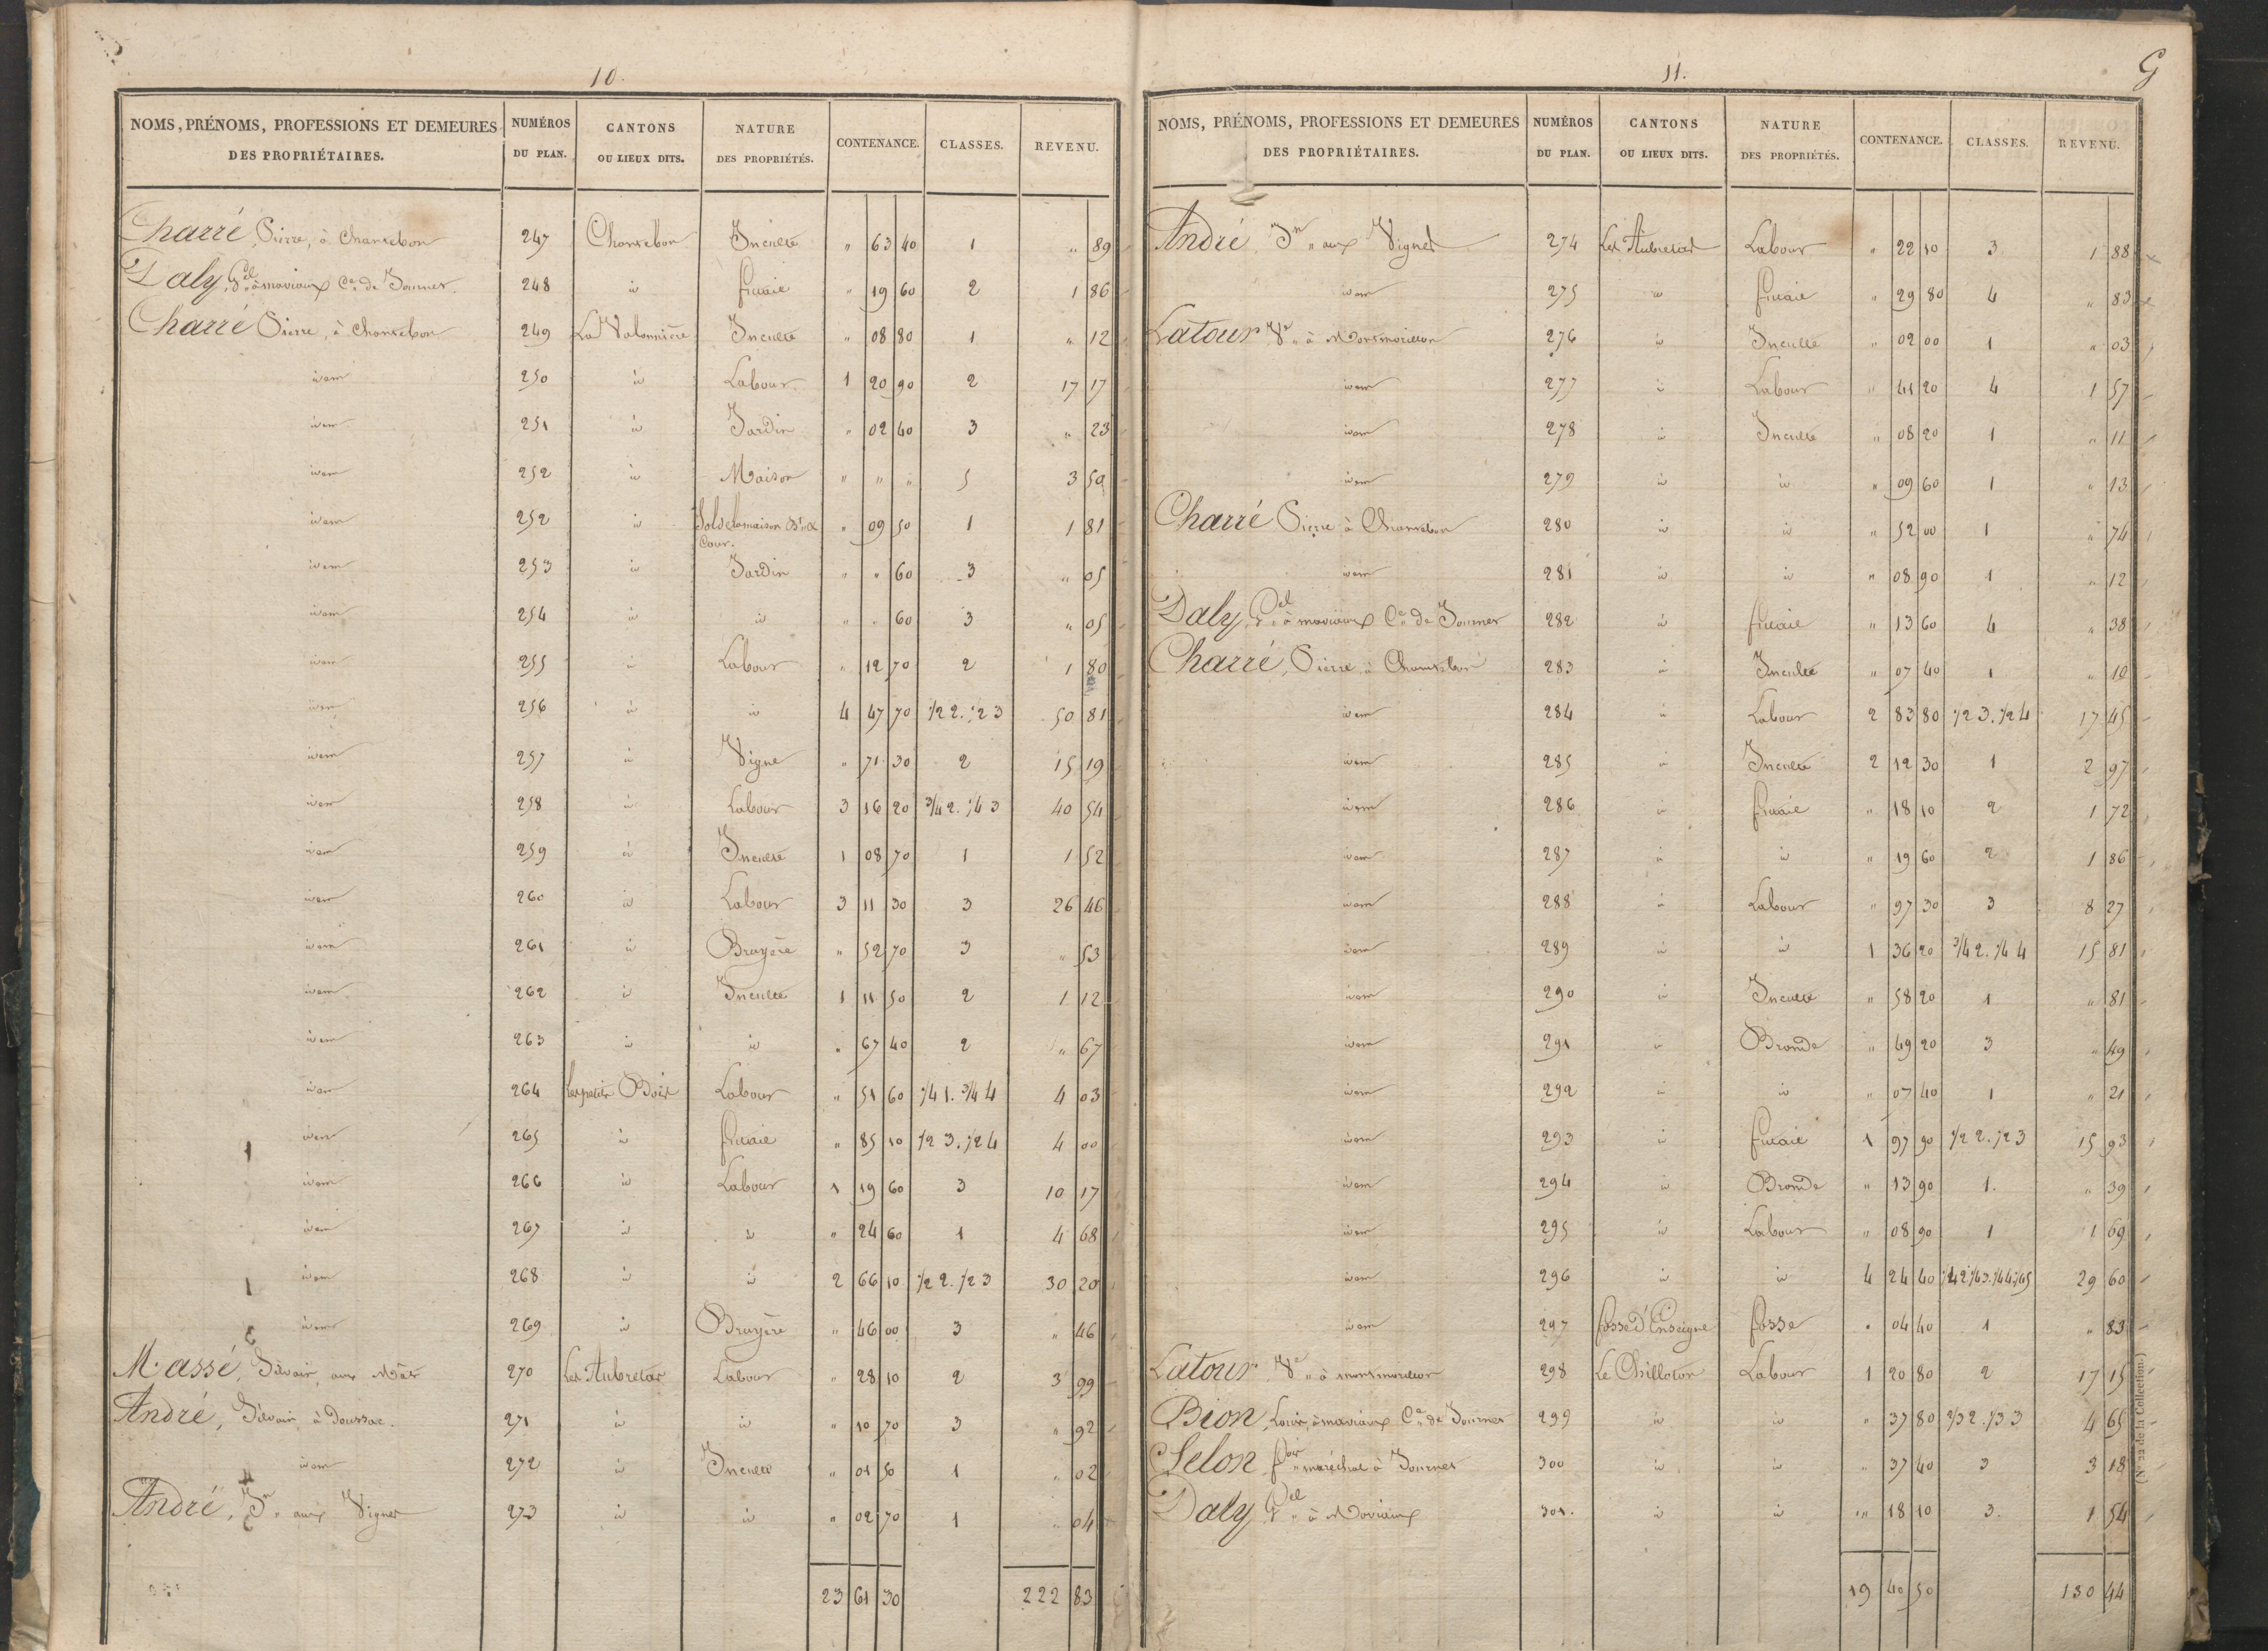 10.
NOMS, PRÉNOMS, PROFESSIONS ET DEMEURES DES PROPRIÉTAIRES. NUMÉROS DU PLAN. CANTONS OU LIEUX DITS. NATURE DES PROPRIÉTÉS. CONTENANCE. CLASSES. REVENU.
Charré, Pierre, à Chantebon 247 Chantebon Inculte " 63 40 1 " 89
Daly, P.el à moviaux C.ne de Journet. 248 id friaie " 19 60 2 1 86
Charré Pierre, à Chantebon 249 La Valonnière Inculte " 08 80 1 " 12
idem 250 id Labour 1 20 90 2 17 17
idem 251 id Jardin " 02 40 3 " 23
idem 252 id Maison " " " 5 3 50
idem 252 id Sol de la maison Bt. et Cour. " 09 50 1 1 81
idem 253 id Jardin " " 60 3 " 05
idem 254 id id " " 60 3 " 05
idem 255 id Labour " 12 70 2 1 80
idem 256 id id 4 47 70 1/2 2. 1/2 3 50 81
idem 257 id Vigne " 71 30 2 15 19
idem 258 id Labour 3 16 20 3/4 2. 1/4 3 40 54
idem 259 id Inculte 1 08 70 1 1 52
idem 260 id Labour 3 11 30 3 26 46
idem 261 id Bruyère " 52 70 3 " 53
idem 262 id Inculte 1 11 50 2 1 12
idem 263 id id " 67 40 2 " 67
idem 264 Les petits Bois Labour " 51 60 1/4 1. 3/4 4 4 03
idem 265 id friaie " 85 10 1/2 3. 1/2 4 4 00
idem 266 id Labour 1 19 60 3 10 17
idem 267 id id " 24 60 1 4 68
idem 268 id id 2 66 10 1/2 2. 1/2 3 30 20
idem 269 id Bruyère " 46 00 3 " 46
Massé, Silvain, aux Mâts 270 Les Aubretas Labour " 28 10 2 3 99
André, Silvain, à Doussac. 271 id id " 10 70 3 " 92
idem 272 id Inculte " 01 50 1 " 02
André, Jn " aux Vignes 273 id id " 02 70 1 " 04
23 61 30 222 83
11.
G
NOMS, PRÉNOMS, PROFESSIONS ET DEMEURES DES PROPRIÉTAIRES. NUMÉROS DU PLAN. CANTONS OU LIEUX DITS. NATURE DES PROPRIÉTÉS. CONTENANCE. CLASSES. REVENU.
André, Jn " aux Vignes 274 Les Aubretas Labour " 22 10 3 1 88
idem 275 id friaie " 29 80 4 " 83
Latour Ve " à Montmorillon 276 id Inculte " 02 00 1 " 03
idem 277 id Labour " 41 20 4 1 57
idem 278 id Inculte " 08 20 1 " 11
idem 279 id id " 09 60 1 " 13
Charré Pierre à Chantebon 280 id id " 52 00 1 " 74
idem 281 id id " 08 90 1 " 12
Daly, P.el à moviaux C.ne de Journet 282 id friaie " 13 60 4 " 38
Charré, Pierre, à Chantebon 283 id Inculte " 07 40 1 " 10
idem 284 id Labour 2 83 80 1/2 3. 1/2 4 17 45
idem 285 id Inculte 2 12 30 1 2 97
idem 286 id friaie " 18 10 2 1 72
idem 287 id id " 19 60 2 1 86
idem 288 id Labour " 97 30 3 8 27
idem 289 id id 1 36 20 3/4 2. 1/4 4 15 81
idem 290 id Inculte " 58 20 1 " 81
idem 291 id Brande " 49 20 3 " 49
idem 292 id id " 07 40 1 " 21
idem 293 id friaie 1 97 90 1/2 2. 1/2 3 15 93
idem 294 id Brande " 13 90 1. " 39
idem 295 id Labour " 08 90 1 1 69
idem 296 id id 4 24 40 1/4 2. 1/4 3. 1/4 4. 1/4 5 29 60
idem 297 fosse d'Enseigne fosse " 04 40 1 " 83
Latour Ve " à montmorillon 298 Le Chilloton Labour 1 20 80 2 17 15
Bion, Louis, à moviaux C.ne de Journet 299 id id " 37 80 2/3 2. 1/3 3 4 65
Selon, fois " maréchal à Journet 300 id id " 37 40 3 3 18
Daly, P.el " à Moviaux 301. id id " 18 10 3. 1 54
19 40 50 130 44
(N° 22 de la Collection.)